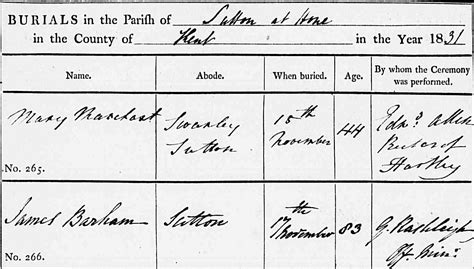 BURIALS in the Parish of Sutton at Hone
in the County of Kent in the Year 1831
Name. Abode. When buried. Age. By whom the Ceremony was performed.
Mary Marchant Swanley Sutton 15th November 44 Edwd. Allen Rector of Hartley
No. 265.
James Barham Sutton 17th November 83 G. Rashleigh Off. Minr.
No. 266.